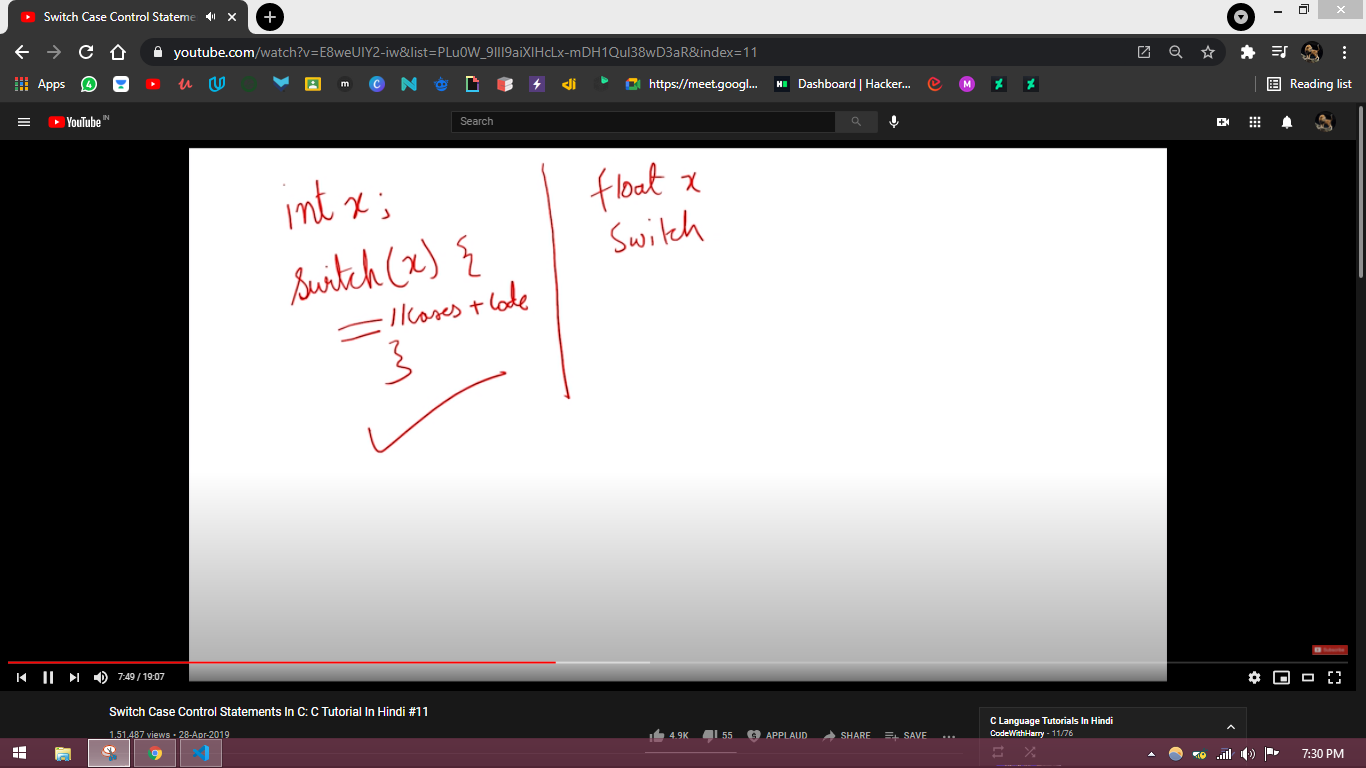 Switch Case Control Stateme
youtube.com/watch?v=E8weUIY2-iw&list=PLu0W_9lII9aiXlHcLx-mDH1Qul38wD3aR&index=11
Apps
https://meet.googl...
Dashboard | Hacker...
Reading list
YouTube IN
Search
int x;
switch(x) {
= //cases + code
}
float x
Switch
Subscribe
7:49 / 19:07
Switch Case Control Statements In C: C Tutorial In Hindi #11
1,51,487 views • 28-Apr-2019
4.9K
55
APPLAUD
SHARE
SAVE
C Language Tutorials In Hindi
CodeWithHarry - 11/76
7:30 PM